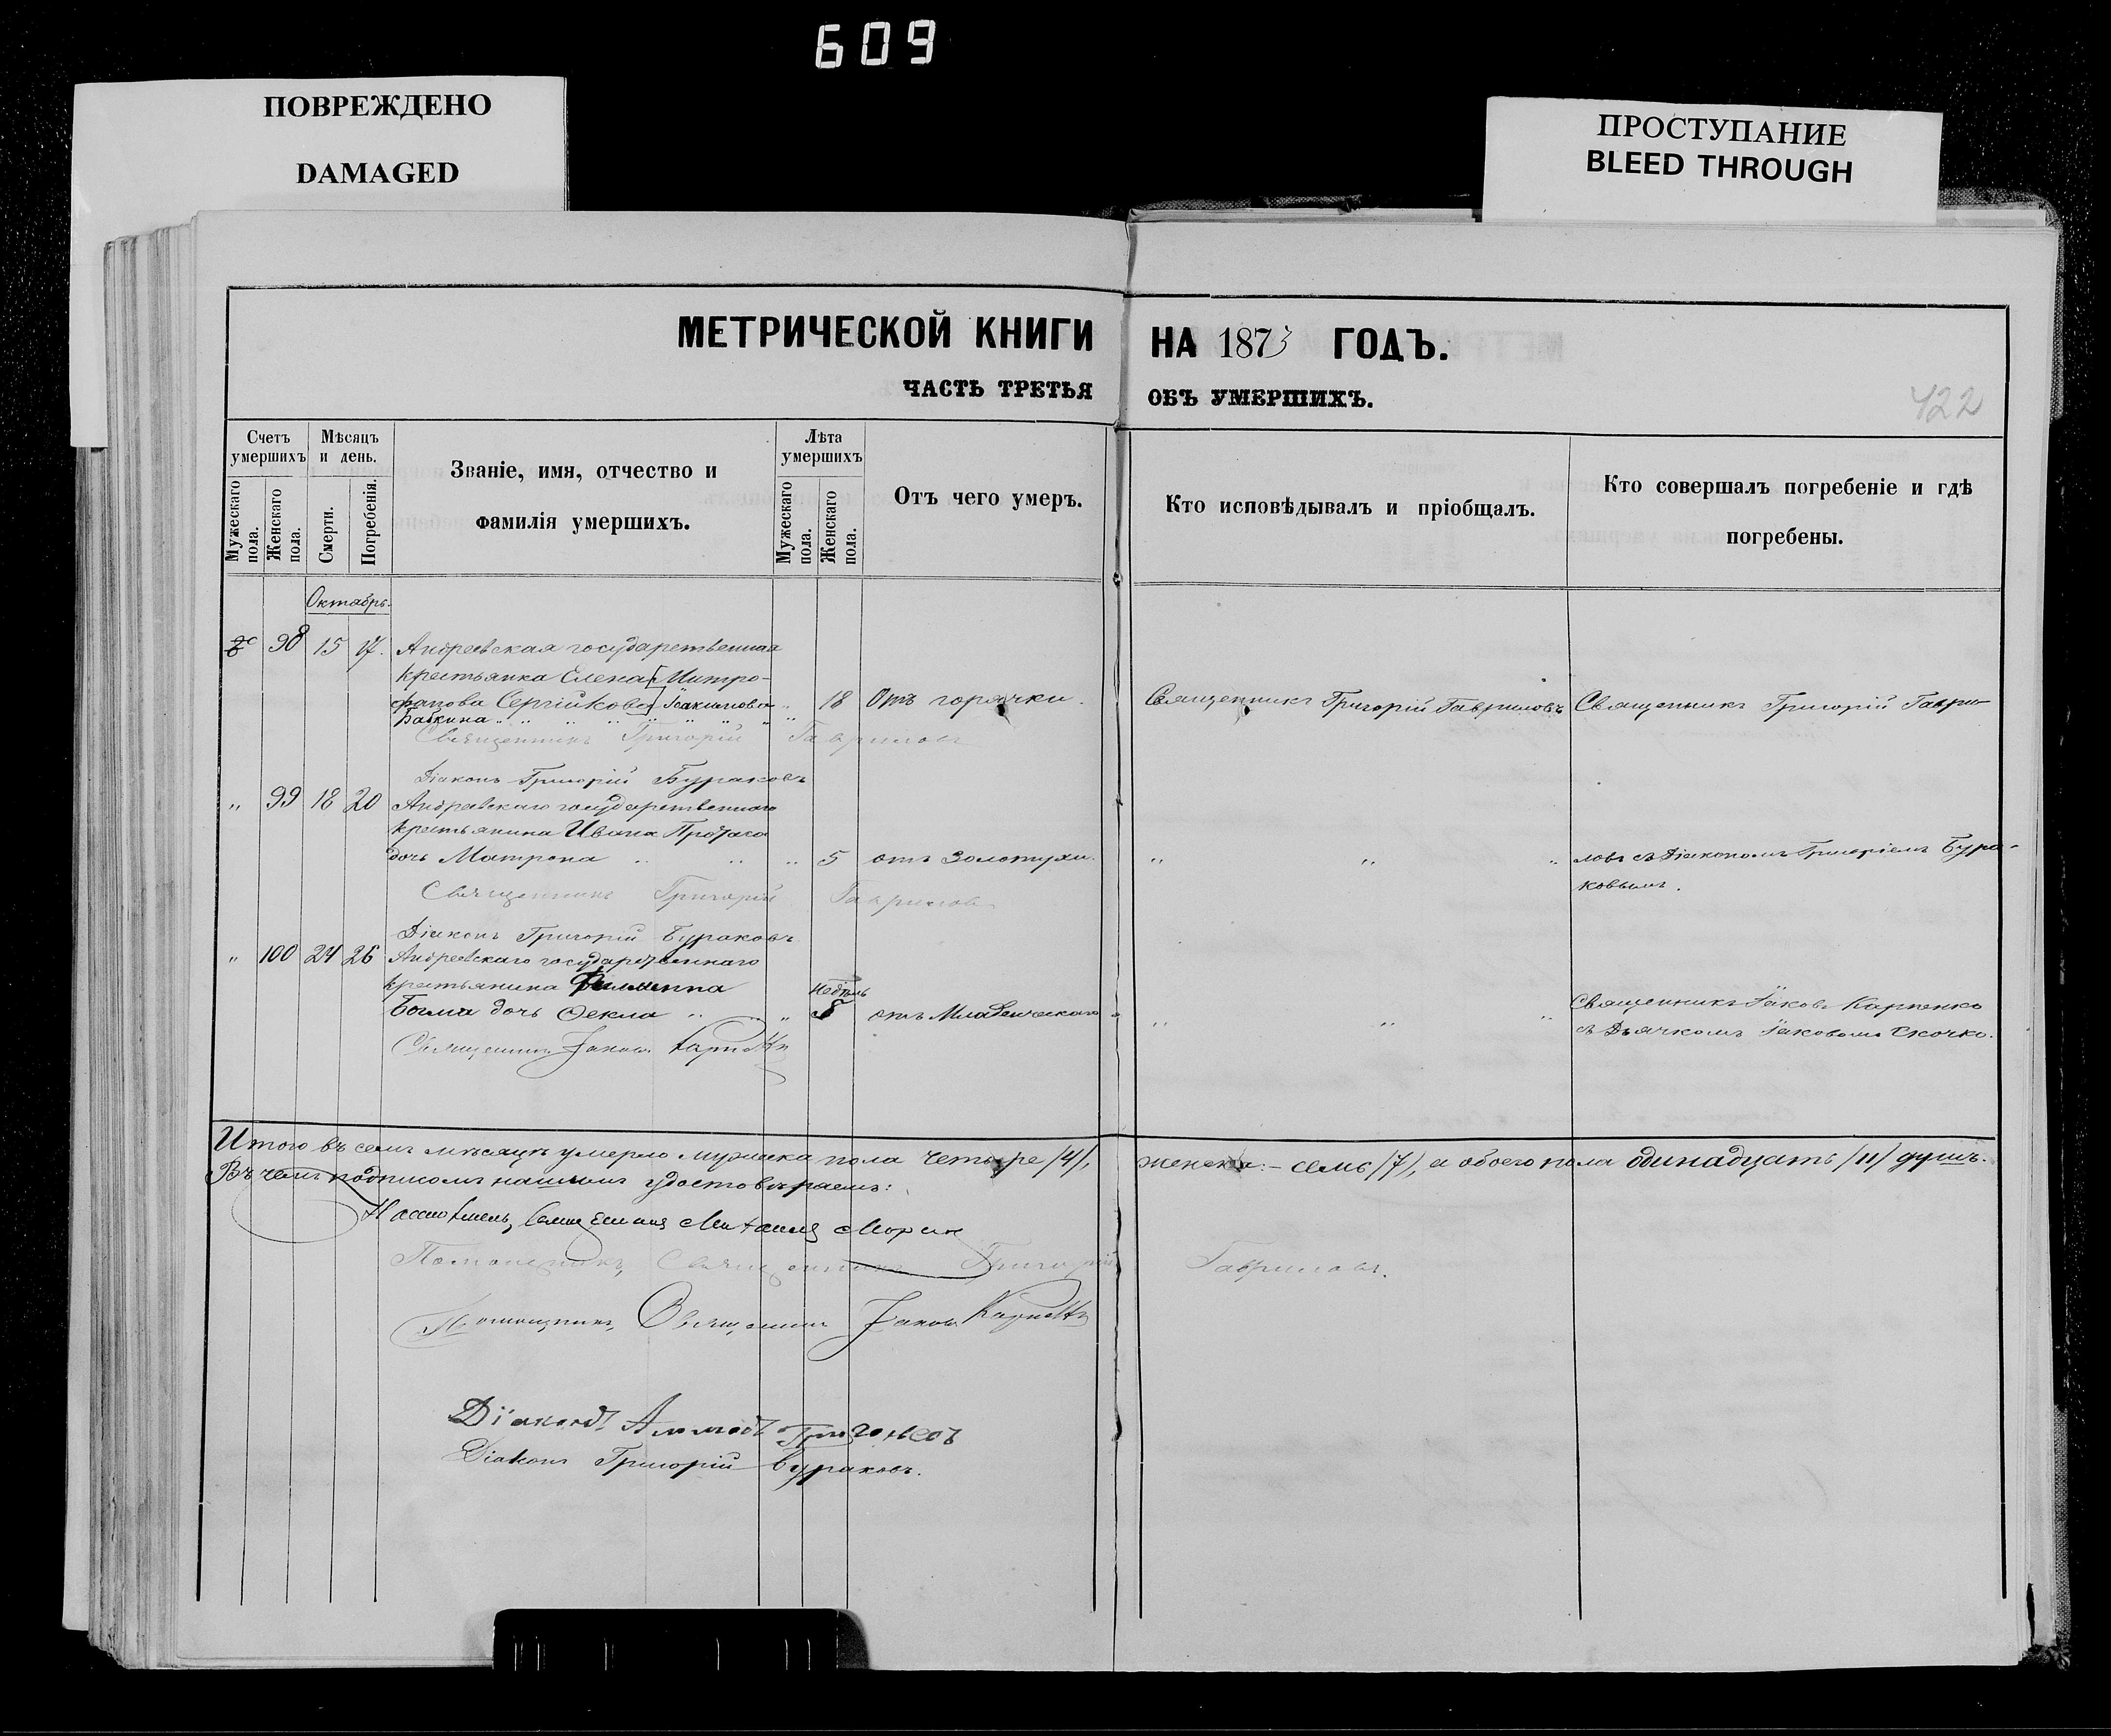 609
ПОВРЕЖДЕНО
DAMAGED
ПРОСТУПАНИЕ
BLEED THROUGH
МЕТРИЧЕСКОЙ КНИГИ НА 1873 ГОДЪ.
ЧАСТЬ ТРЕТЬЯ ОБЪ УМЕРШИХЪ.
422
Счетъ умершихъ
Мужескаго пола.
Женскаго пола.
Мѣсяцъ и день.
Смерти.
Погребенія.
Званіе, имя, отчество и
фамилія умершихъ.
Лѣта умершихъ
Мужескаго пола.
Женскаго пола.
Отъ чего умеръ.
Кто исповѣдывалъ и пріобщалъ.
Кто совершалъ погребеніе и гдѣ
погребены.
Октябрь.
98 15 17. Андреевская государственная
крестьянка Елена [Митро-
фанова Сергійкова] Іакимова
Бабкина 18 Отъ горячки. Священникъ Григорій Гавриловъ Священникъ Григорій Гаври-
Священникъ Григорій Гавриловъ
Діаконъ Григорій Бураковъ
" 99 18 20 Андреевскаго государственнаго
крестьянина Ивана
дочь Матрона " " " 5 отъ золотухи. " " " ловъ съ Діакономъ Григоріемъ Бура-
ковымъ.
Священникъ Григорій Гавриловъ
Діаконъ Григорій Бураковъ
" 100 24 26 Андреевскаго государственнаго
крестьянина Филиппа недѣль
дочь Ѳекла " " " 8 отъ Младенческаго " " " Священникъ Іаковъ Карпенко
съ Дьячкомъ Іаковомъ Скочко.
Священникъ Іаковъ
Итого въ семъ мѣсяцѣ умерло мужеска пола четыре /4/, женска – семь /7/, а обоего пола одинадцать /11/ душъ.
Въ чемъ подписомъ нашимъ удостовѣряемъ:
Настоятель, Священникъ Михаилъ
Помощникъ, Священникъ Григорій Гавриловъ.
Помощникъ, Священникъ Іаковъ
Діаконъ
Діаконъ Григорій Бураковъ.